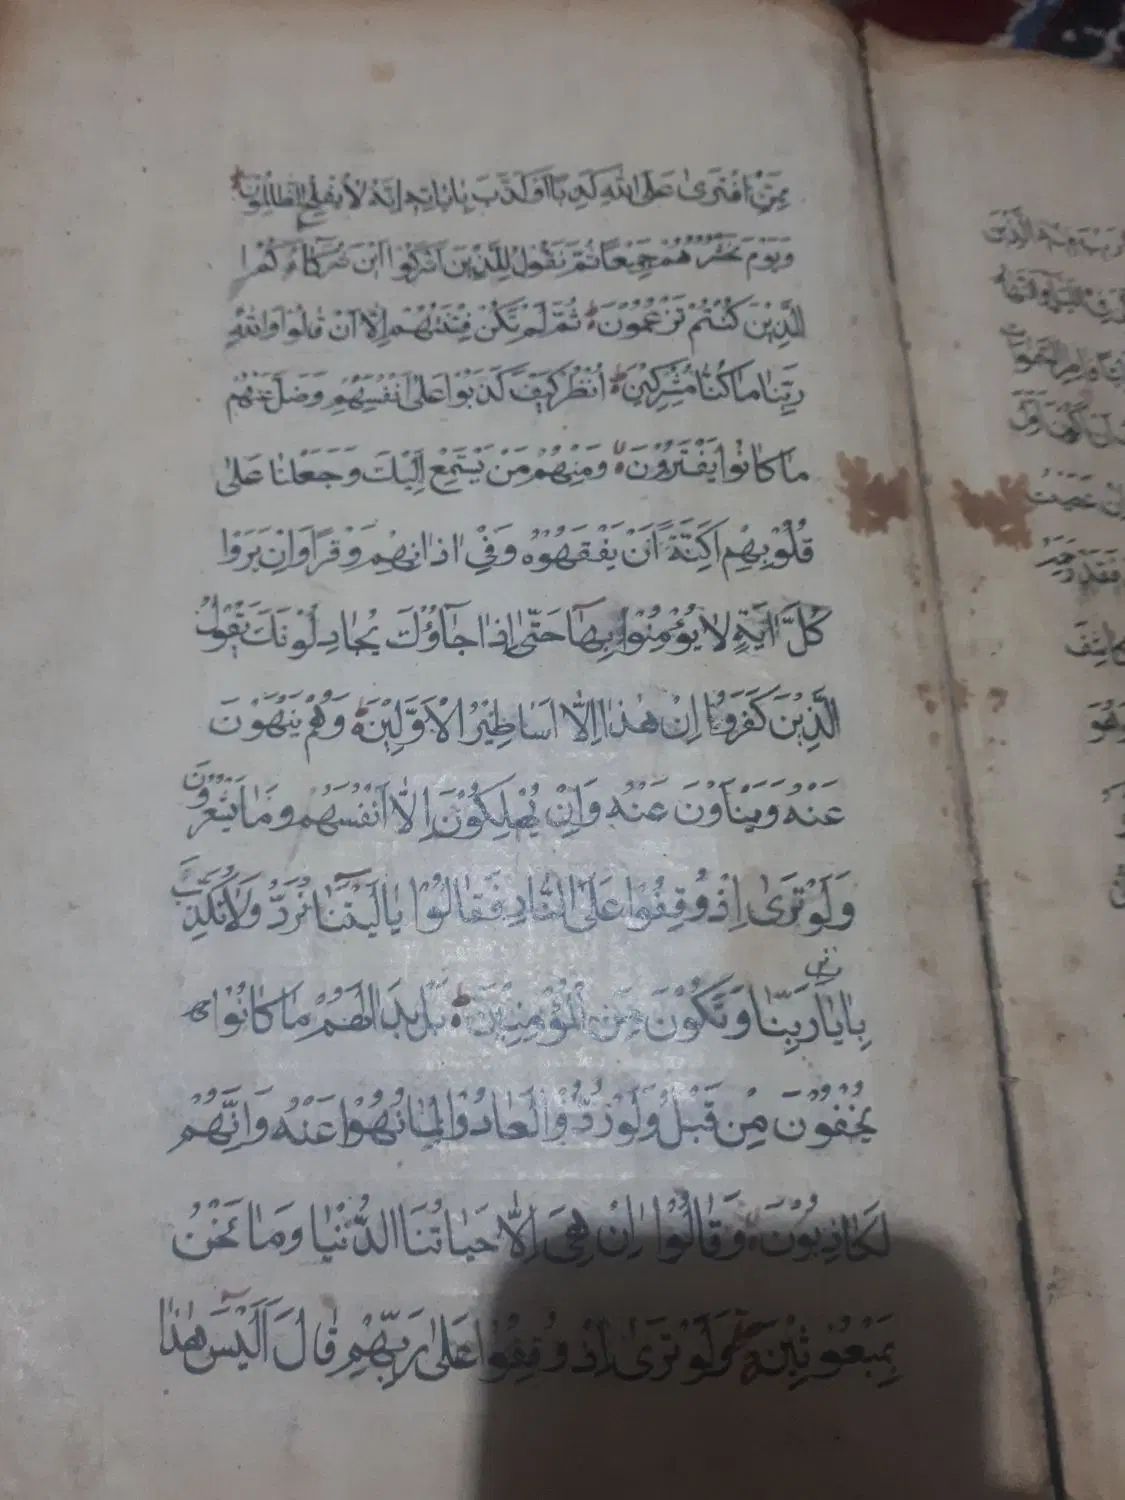 مِمَّنِ افْتَرىٰ عَلَى اللّٰهِ كَذِبًا اَوْ كَذَّبَ بِاٰيٰاتِهِ اِنَّهُ لٰا يُفْلِحُ الظّٰالِمُونَ
وَيَوْمَ نَحْشُرُهُمْ جَمِيعًا ثُمَّ نَقُولُ لِلَّذِينَ اَشْرَكُوا اَيْنَ شُرَكَاۤؤُكُمُ
الَّذِينَ كُنْتُمْ تَزْعُمُونَ ثُمَّ لَمْ تَكُنْ فِتْنَتُهُمْ اِلَّا اَنْ قٰالُوا وَاللّٰهِ
رَبِّنٰا مٰا كُنّٰا مُشْرِكِينَ اُنْظُرْ كَيْفَ كَذَبُوا عَلىٰ اَنْفُسِهِمْ وَضَلَّ عَنْهُمْ
مٰا كٰانُوا يَفْتَرُونَ وَمِنْهُمْ مَنْ يَسْتَمِعُ اِلَيْكَ وَجَعَلْنٰا عَلىٰ
قُلُوبِهِمْ اَكِنَّةً اَنْ يَفْقَهُوهُ وَفِي اٰذٰانِهِمْ وَقْرًا وَاِنْ يَرَوْا
كُلَّ اٰيَةٍ لٰا يُؤْمِنُوا بِهٰا حَتّىٰ اِذٰا جَاۤؤُكَ يُجٰادِلُونَكَ يَقُولُ
الَّذِينَ كَفَرُوا اِنْ هٰذٰا اِلّٰا اَسٰاطِيْرُ الْاَوَّلِيْنَ وَهُمْ يَنْهَوْنَ
عَنْهُ وَيَنْاَوْنَ عَنْهُ وَاِنْ يُهْلِكُوْنَ اِلّٰا اَنْفُسَهُمْ وَمٰا يَشْعُرُوْنَ
وَلَوْ تَرىٰ اِذْ وُقِفُوا عَلَى النّٰارِ فَقٰالُوْا يٰا لَيْتَنٰا نُرَدُّ وَلٰا نُكَذِّبَ
بِاٰيٰاتِ رَبِّنٰا وَنَكُوْنَ مِنَ الْمُؤْمِنِيْنَ بَلْ بَدٰا لَهُمْ مٰا كٰانُوْا
يُخْفُوْنَ مِنْ قَبْلُ وَلَوْ رُدُّوْا لَعٰادُوْا لِمٰا نُهُوْا عَنْهُ وَاِنَّهُمْ
لَكٰاذِبُوْنَ وَقٰالُوْا اِنْ هِيَ اِلّٰا حَيٰاتُنَا الدُّنْيٰا وَمٰا نَحْنُ
بِمَبْعُوْثِيْنَ وَلَوْ تَرىٰ اِذْ وُقِفُوْا عَلىٰ رَبِّهِمْ قٰالَ اَلَيْسَ هٰذٰا